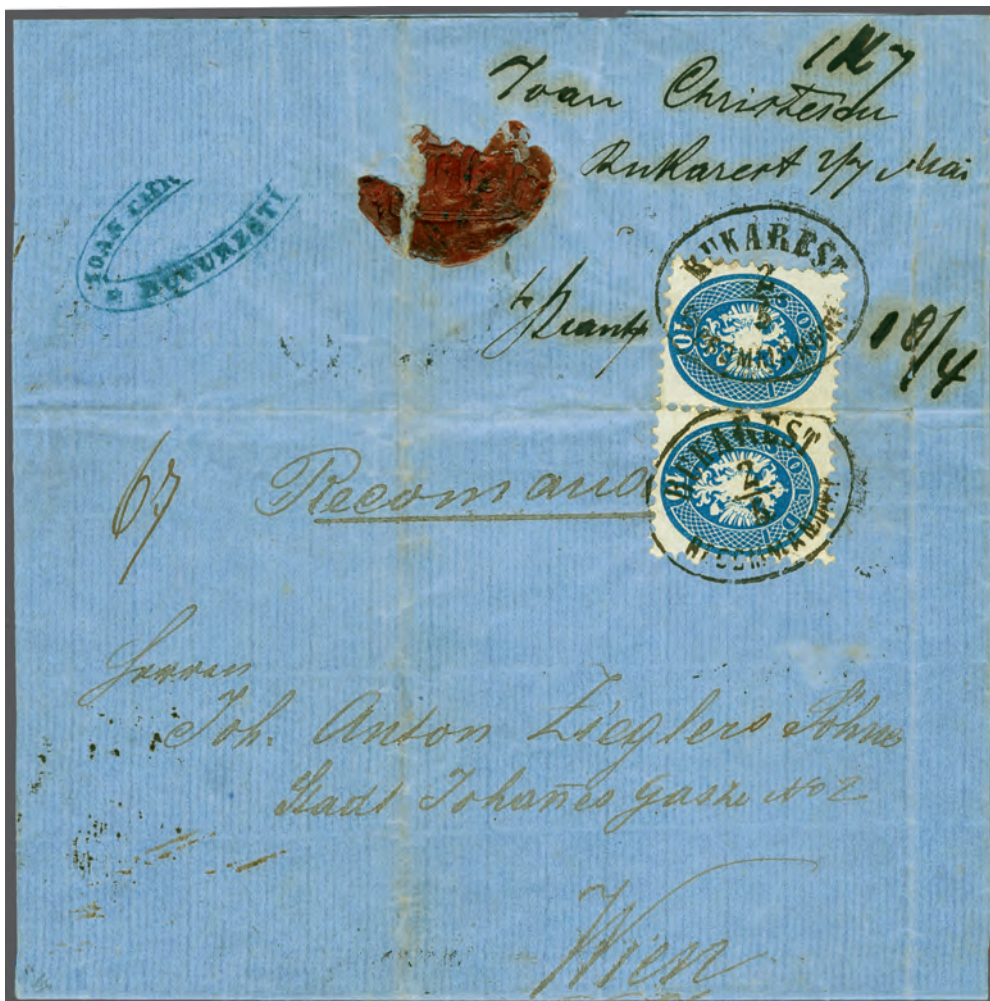 Ioan Christescu
Bukarest Mai
IOAN CHR
BUCURESTI
BUKAREST
2
RECOMMANDIRT
10
10
18/4
BUKAREST
2
5
RECOMMANDIRT
67 Recomand
Herren
Joh. Anton Zieglers Söhne
Stadt Johañes gasse No 2
Wien